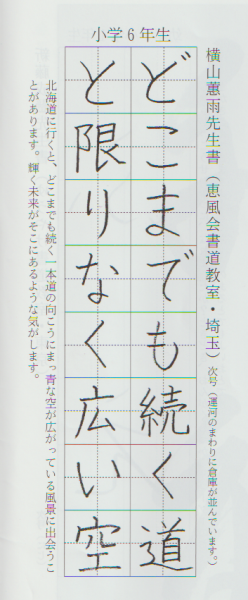 小学6年生
横山蕙雨先生書（恵風会書道教室・埼玉）次号（運河のまわりに倉庫が並んでいます。）
どこまでも続く道
と限りなく広い空
北海道に行くと、どこまでも続く一本道の向こうにまっ青な空が広がっている風景に出会うこ
とがあります。輝く未来がそこにあるような気がします。